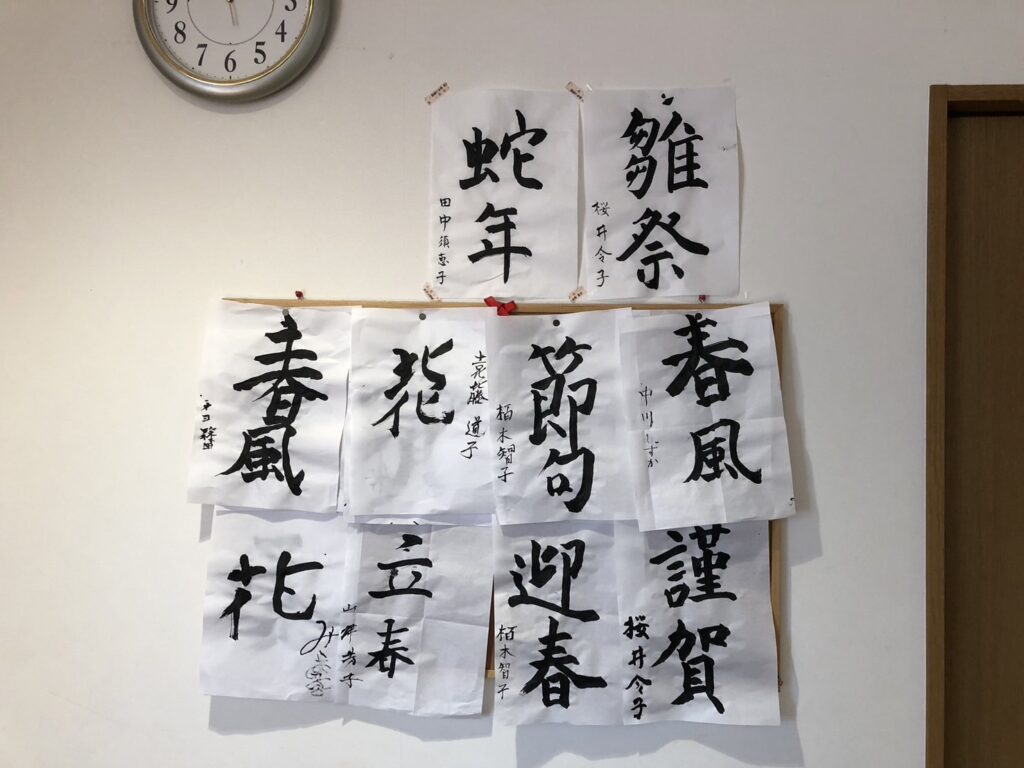 9
8
7
6
5
4
3
雛祭
桜井令子
蛇年
田中須恵子
春風
中川しずか
節句
栢木智子
花
道子
春風
謹賀
桜井令子
迎春
栢木智子
立春
花
み